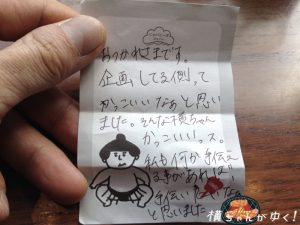 おつかれさまです。
企画してる側って
かっこいいなぁと思い
ました。そんな横ちゃん
かっこいいッス。
私も何か手伝え
る事があれば、
手伝いたいなぁ
と思いました
横ちゃんがゆく！